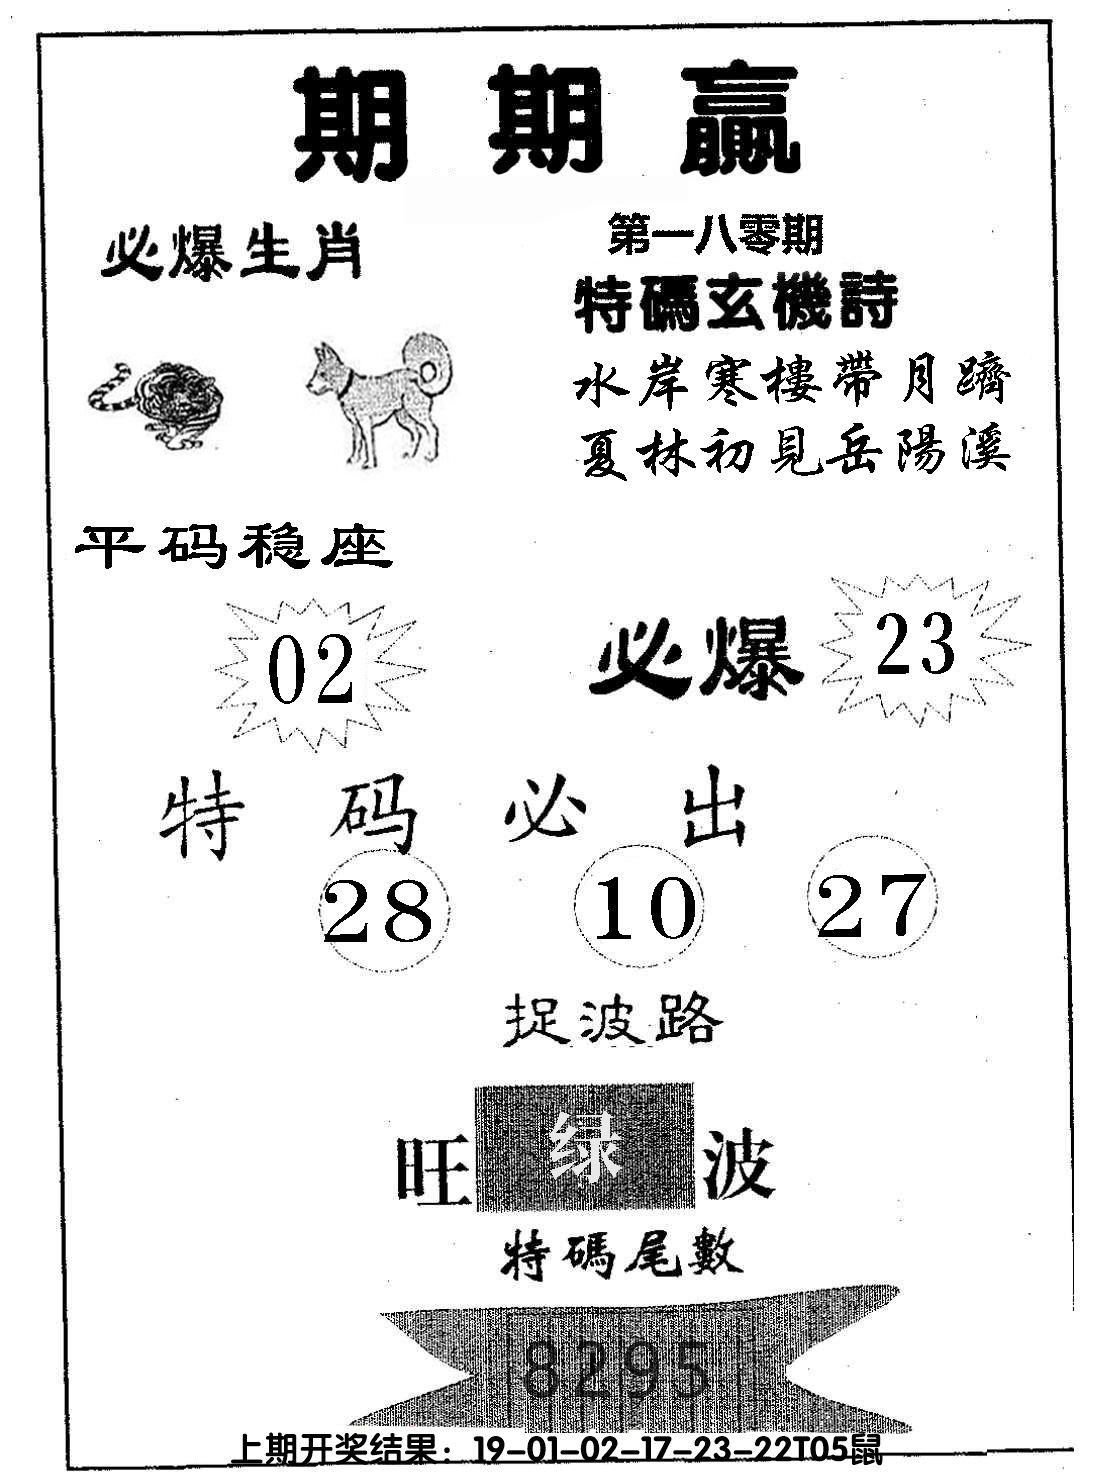 期期赢
必爆生肖
第一八零期
特碼玄機詩
水岸寒樓帶月躋
夏林初見岳陽溪
平码稳座
02
必爆 23
特码必出
28 10 27
捉波路
旺 绿 波
特碼尾數
8295
上期开奖结果：19-01-02-17-23-22T05鼠